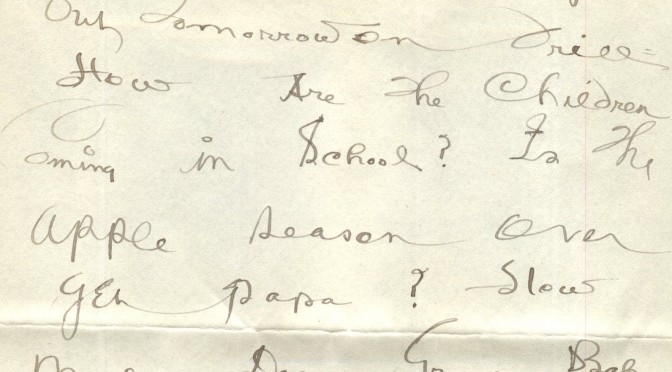 Out Tomorrow on Drill=
How Are The Children
Coming in School? Is The
Apple Season Over
Yet Papa? Slow